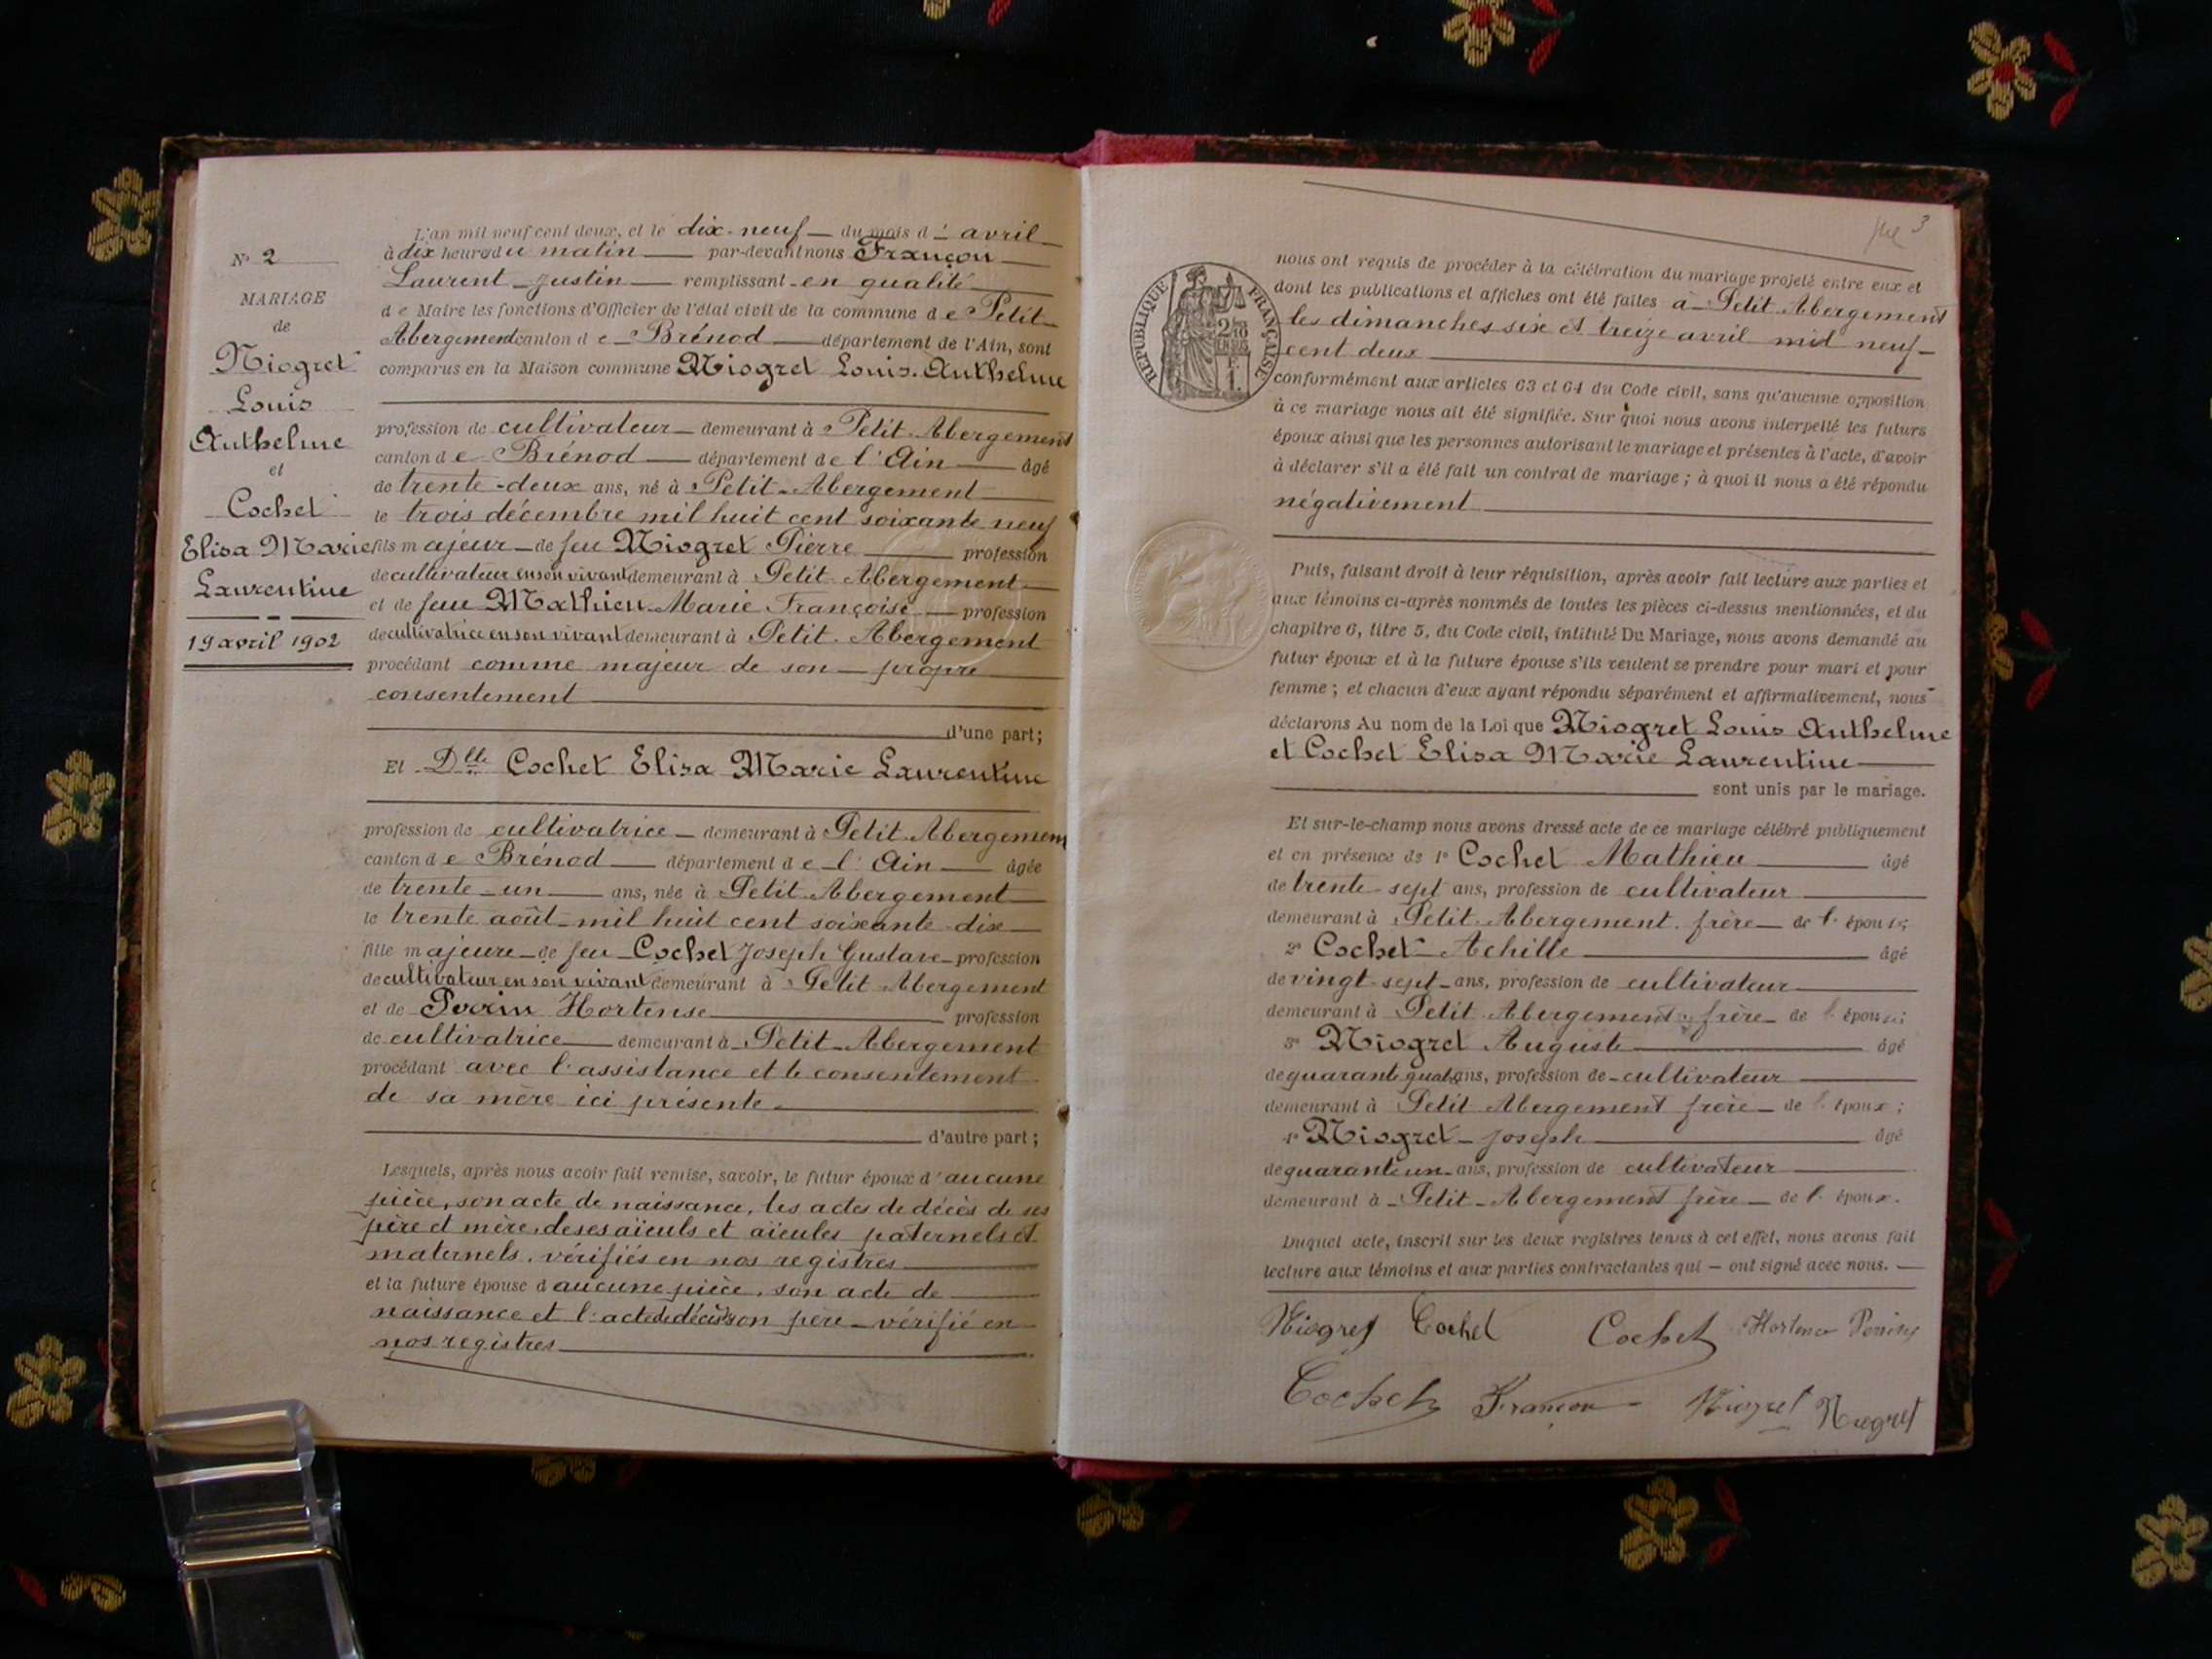 N° 2
MARIAGE
de
Niogret
Louis
Anthelme
et
Cochet
Elisa Marie
Laurentine
19 avril 1902
L'an mil neuf cent deux, et le dix-neuf du mois d'avril
à dix heures du matin par-devant nous Françon
Laurent Justin remplissant en qualité
de Maire les fonctions d'Officier de l'état civil de la commune de Petit
Abergement canton de Brénod département de l'Ain, sont
comparus en la Maison commune Niogret Louis Anthelme
profession de cultivateur demeurant à Petit Abergement
canton de Brénod département de l'Ain âgé
de trente-deux ans, né à Petit-Abergement
le trois décembre mil huit cent soixante neuf
fils majeur de feu Niogret Pierre profession
de cultivateur en son vivant demeurant à Petit Abergement
et de feue Mathieu Marie Françoise profession
de cultivatrice en son vivant demeurant à Petit Abergement
procédant comme majeur de son propre
consentement
d'une part;
Et Dlle Cochet Elisa Marie Laurentine
profession de cultivatrice demeurant à Petit Abergement
canton de Brénod département de l'Ain âgée
de trente-un ans, née à Petit Abergement
le trente août mil huit cent soixante-dix
fille majeure de feu Cochet Joseph Gustave profession
de cultivateur en son vivant demeurant à Petit Abergement
et de Perrin Hortense profession
de cultivatrice demeurant à Petit-Abergement
procédant avec l'assistance et le consentement
de sa mère ici présente
d'autre part;
Lesquels, après nous avoir fait remise, savoir, le futur époux d'aucune
pièce, son acte de naissance, les actes de décès de ses
père et mère, de ses aïeuls et aïeules paternels et
maternels, vérifiés en nos registres
et la future épouse d'aucune pièce, son acte de
naissance et l'acte de décès de son père vérifié en
nos registres
3
RÉPUBLIQUE FRANÇAISE
nous ont requis de procéder à la célébration du mariage projeté entre eux et
dont les publications et affiches ont été faites à Petit Abergement
les dimanches six et treize avril mil neuf
cent deux
conformément aux articles 63 et 64 du Code civil, sans qu'aucune opposition
à ce mariage nous ait été signifiée. Sur quoi nous avons interpellé les futurs
époux ainsi que les personnes autorisant le mariage et présentes à l'acte, d'avoir
à déclarer s'il a été fait un contrat de mariage; à quoi il nous a été répondu
négativement
Puis, faisant droit à leur réquisition, après avoir fait lecture aux parties et
aux témoins ci-après nommés de toutes les pièces ci-dessus mentionnées, et du
chapitre 6, titre 5, du Code civil, intitulé Du Mariage, nous avons demandé au
futur époux et à la future épouse s'ils veulent se prendre pour mari et pour
femme; et chacun d'eux ayant répondu séparément et affirmativement, nous
déclarons Au nom de la Loi que Niogret Louis Anthelme
et Cochet Elisa Marie Laurentine
sont unis par le mariage.
Et sur-le-champ nous avons dressé acte de ce mariage célébré publiquement
et en présence de 1° Cochet Mathieu âgé
de trente-sept ans, profession de cultivateur
demeurant à Petit Abergement frère de l'épouse;
2° Cochet Achille âgé
de vingt-sept ans, profession de cultivateur
demeurant à Petit Abergement frère de l'épouse;
3° Niogret Auguste âgé
de quarante quatre ans, profession de cultivateur
demeurant à Petit Abergement frère de l'époux;
4° Niogret Joseph âgé
de quarante un ans, profession de cultivateur
demeurant à Petit-Abergement frère de l'époux.
Duquel acte, inscrit sur les deux registres tenus à cet effet, nous avons fait
lecture aux témoins et aux parties contractantes qui — ont signé avec nous.
Niogret Cochet Cochet Hortence Perrin
Cochet Françon Niogret Niogret